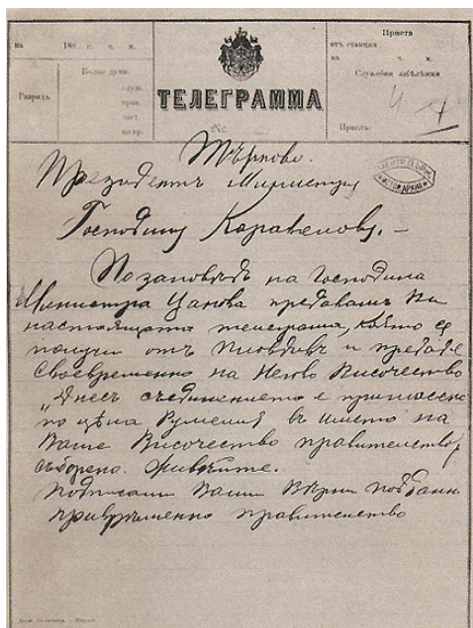 на 188 г. ч. м.
Разрядъ
Болше думи
служ.
прав.
част.
ТЕЛЕГРАММА
№
Приета
отъ станция
на ч. м.
Служебни забѣлѣжки
4
Приелъ:
Търново.
Президентъ Министру
Господину Каравелову. —
По заповѣдь на Господина
Министра Цанова предавамъ Ви
настоящата телеграма, която се
получи отъ Пловдивъ и предаде
своевременно на Негово Височество
„Днесъ съединението е прогласено
по цѣла Румелия въ името на
Ваше Височество правителство
съборено. Живѣйте.
подписали Ваши Вѣрни поданн
привременно правителство